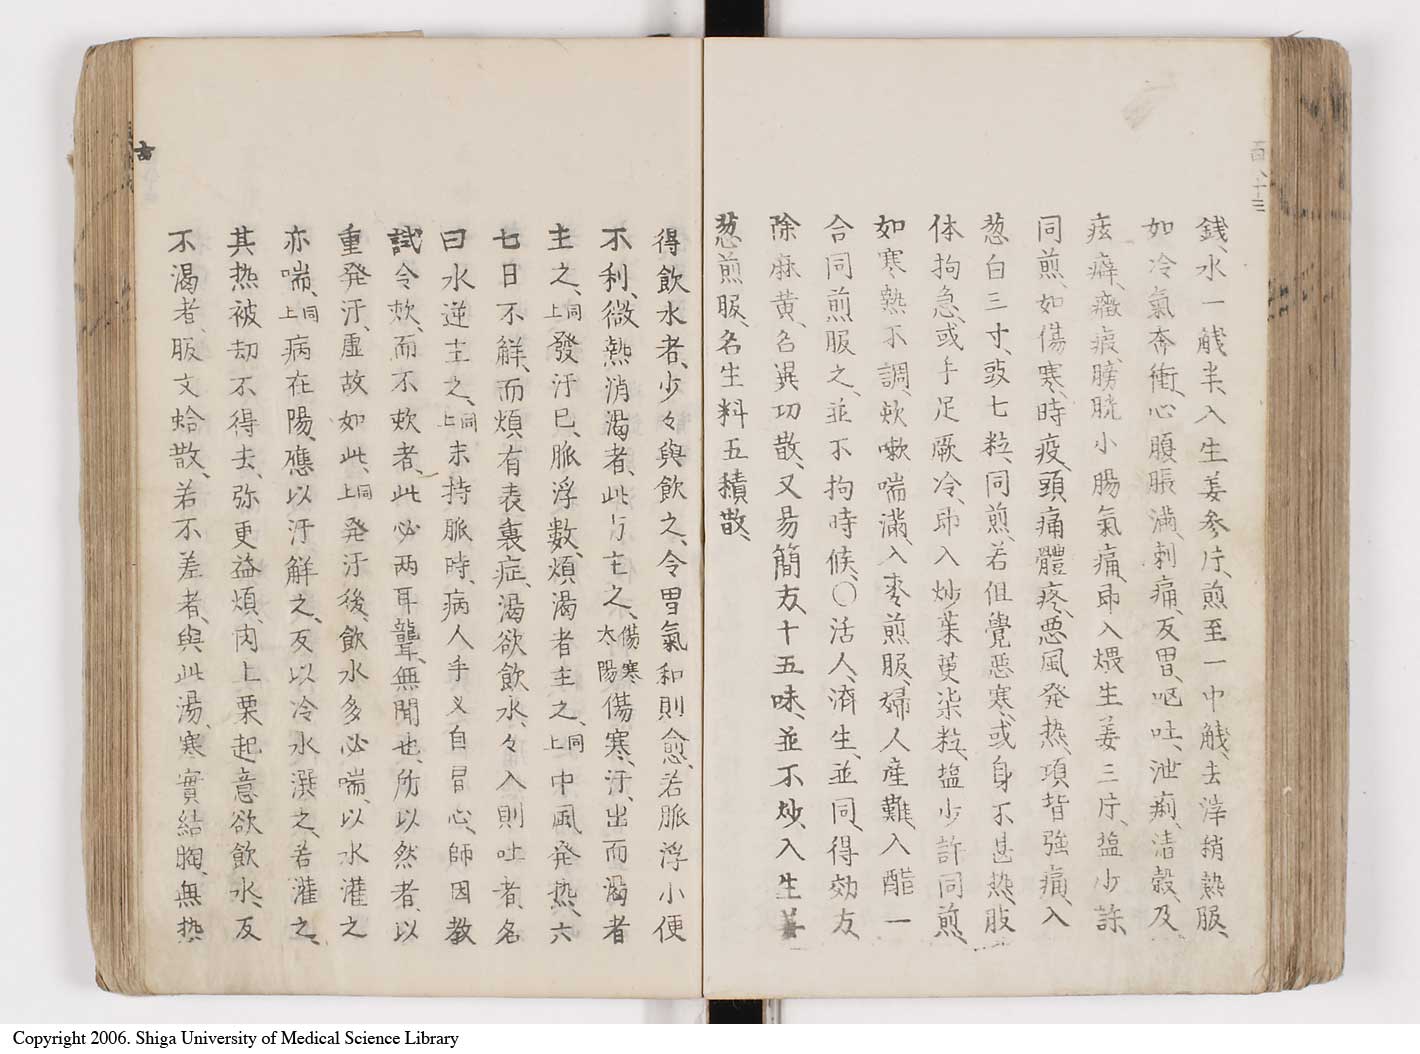 百八十三
錢、水一觥半、入生姜参片、煎至一中觥、去滓稍熱服、
如冷氣奔衝、心腹脹滿、刺痛、反胃、呕吐、泄痢、清穀、及
痃癖、癥瘕、膀胱小腸氣痛、即入煨生姜三片、塩少許
同煎、如傷寒、時疫、頭痛體疼、悪風発热、項背強痛、入
葱白三寸、豉七粒、同煎、若但覺悪寒、或身不甚热、肢
体拘急、或手足厥冷、即入炒茱萸柒粒、塩少許同煎、
如寒熱不調、欬嗽喘滿、入枣煎服、婦人産難、入醋一
合同煎服之、並不拘時候、○活人、済生、並同、得効方、
除麻黄、名異功散、又易簡方、十五味、並不炒、入生姜
葱煎服、名生料五積散、
得飲水者、少々與飲之、令胃氣和則愈、若脈浮小便
不利、微熱消渴者、此方主之、傷寒太陽傷寒、汗出而渴者
主之、同上發汗已、脈浮數、煩渴者主之、同上中風発热、六
七日不解、而煩有表裏症、渴欲飲水、々入則吐者、名
曰水逆主之、同上未持脈時、病人手叉自冒心、師因教
試令欬、而不欬者、此必两耳聾無聞也、所以然者、以
重発汗、虚故如此、同上発汗後、飲水多必喘、以水灌之
亦喘、同上病在陽、應以汗解之、反以冷水潠之、若灌之、
其热被却不得去、弥更益煩、肉上粟起意欲飲水、反
不渴者、服文蛤散、若不差者、與此湯、寒實結胸、無热
Copyright 2006. Shiga University of Medical Science Library